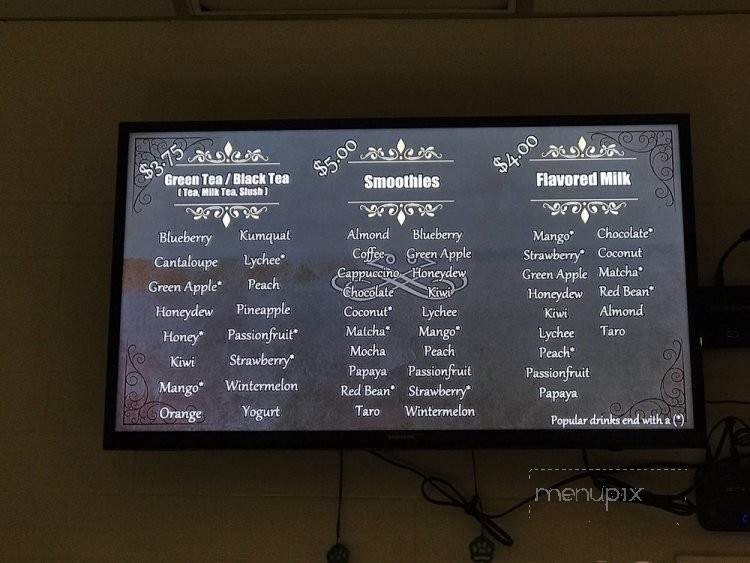 $3.75
Green Tea / Black Tea
( Tea, Milk Tea, Slush )
Blueberry
Cantaloupe
Green Apple*
Honeydew
Honey*
Kiwi
Mango*
Orange
Kumquat
Lychee*
Peach
Pineapple
Passionfruit*
Strawberry*
Wintermelon
Yogurt
$5.00
Smoothies
Almond
Coffee
Cappuccino
Chocolate
Coconut*
Matcha*
Mocha
Papaya
Red Bean*
Taro
Blueberry
Green Apple
Honeydew
Kiwi
Lychee
Mango*
Peach
Passionfruit
Strawberry*
Wintermelon
$4.00
Flavored Milk
Mango*
Strawberry*
Green Apple
Honeydew
Kiwi
Lychee
Peach*
Passionfruit
Papaya
Chocolate*
Coconut
Matcha*
Red Bean*
Almond
Taro
Popular drinks end with a (*)
SAMSUNG
menupix